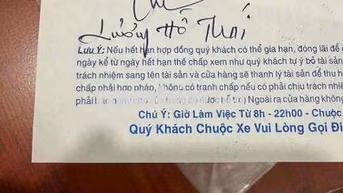 Lường Hồ Thái
Lưu Ý: Nếu hết hạn hợp đồng quý khách có thể gia hạn, đóng lãi để g
ngày kể từ ngày hết hạn thế chấp xem như quý khách tự ý bỏ tài sản
trách nhiệm sang tên tài sản và cửa hàng sẽ thanh lý tài sản để thu h
chấp phải hợp pháp, không có tranh chấp nếu có phải chịu trách nhiệ
phải Ngoài ra cửa hàng khôn
Chú Ý: Giờ Làm Việc Từ 8h - 22h00 - Chuộc
Quý Khách Chuộc Xe Vui Lòng Gọi Đi